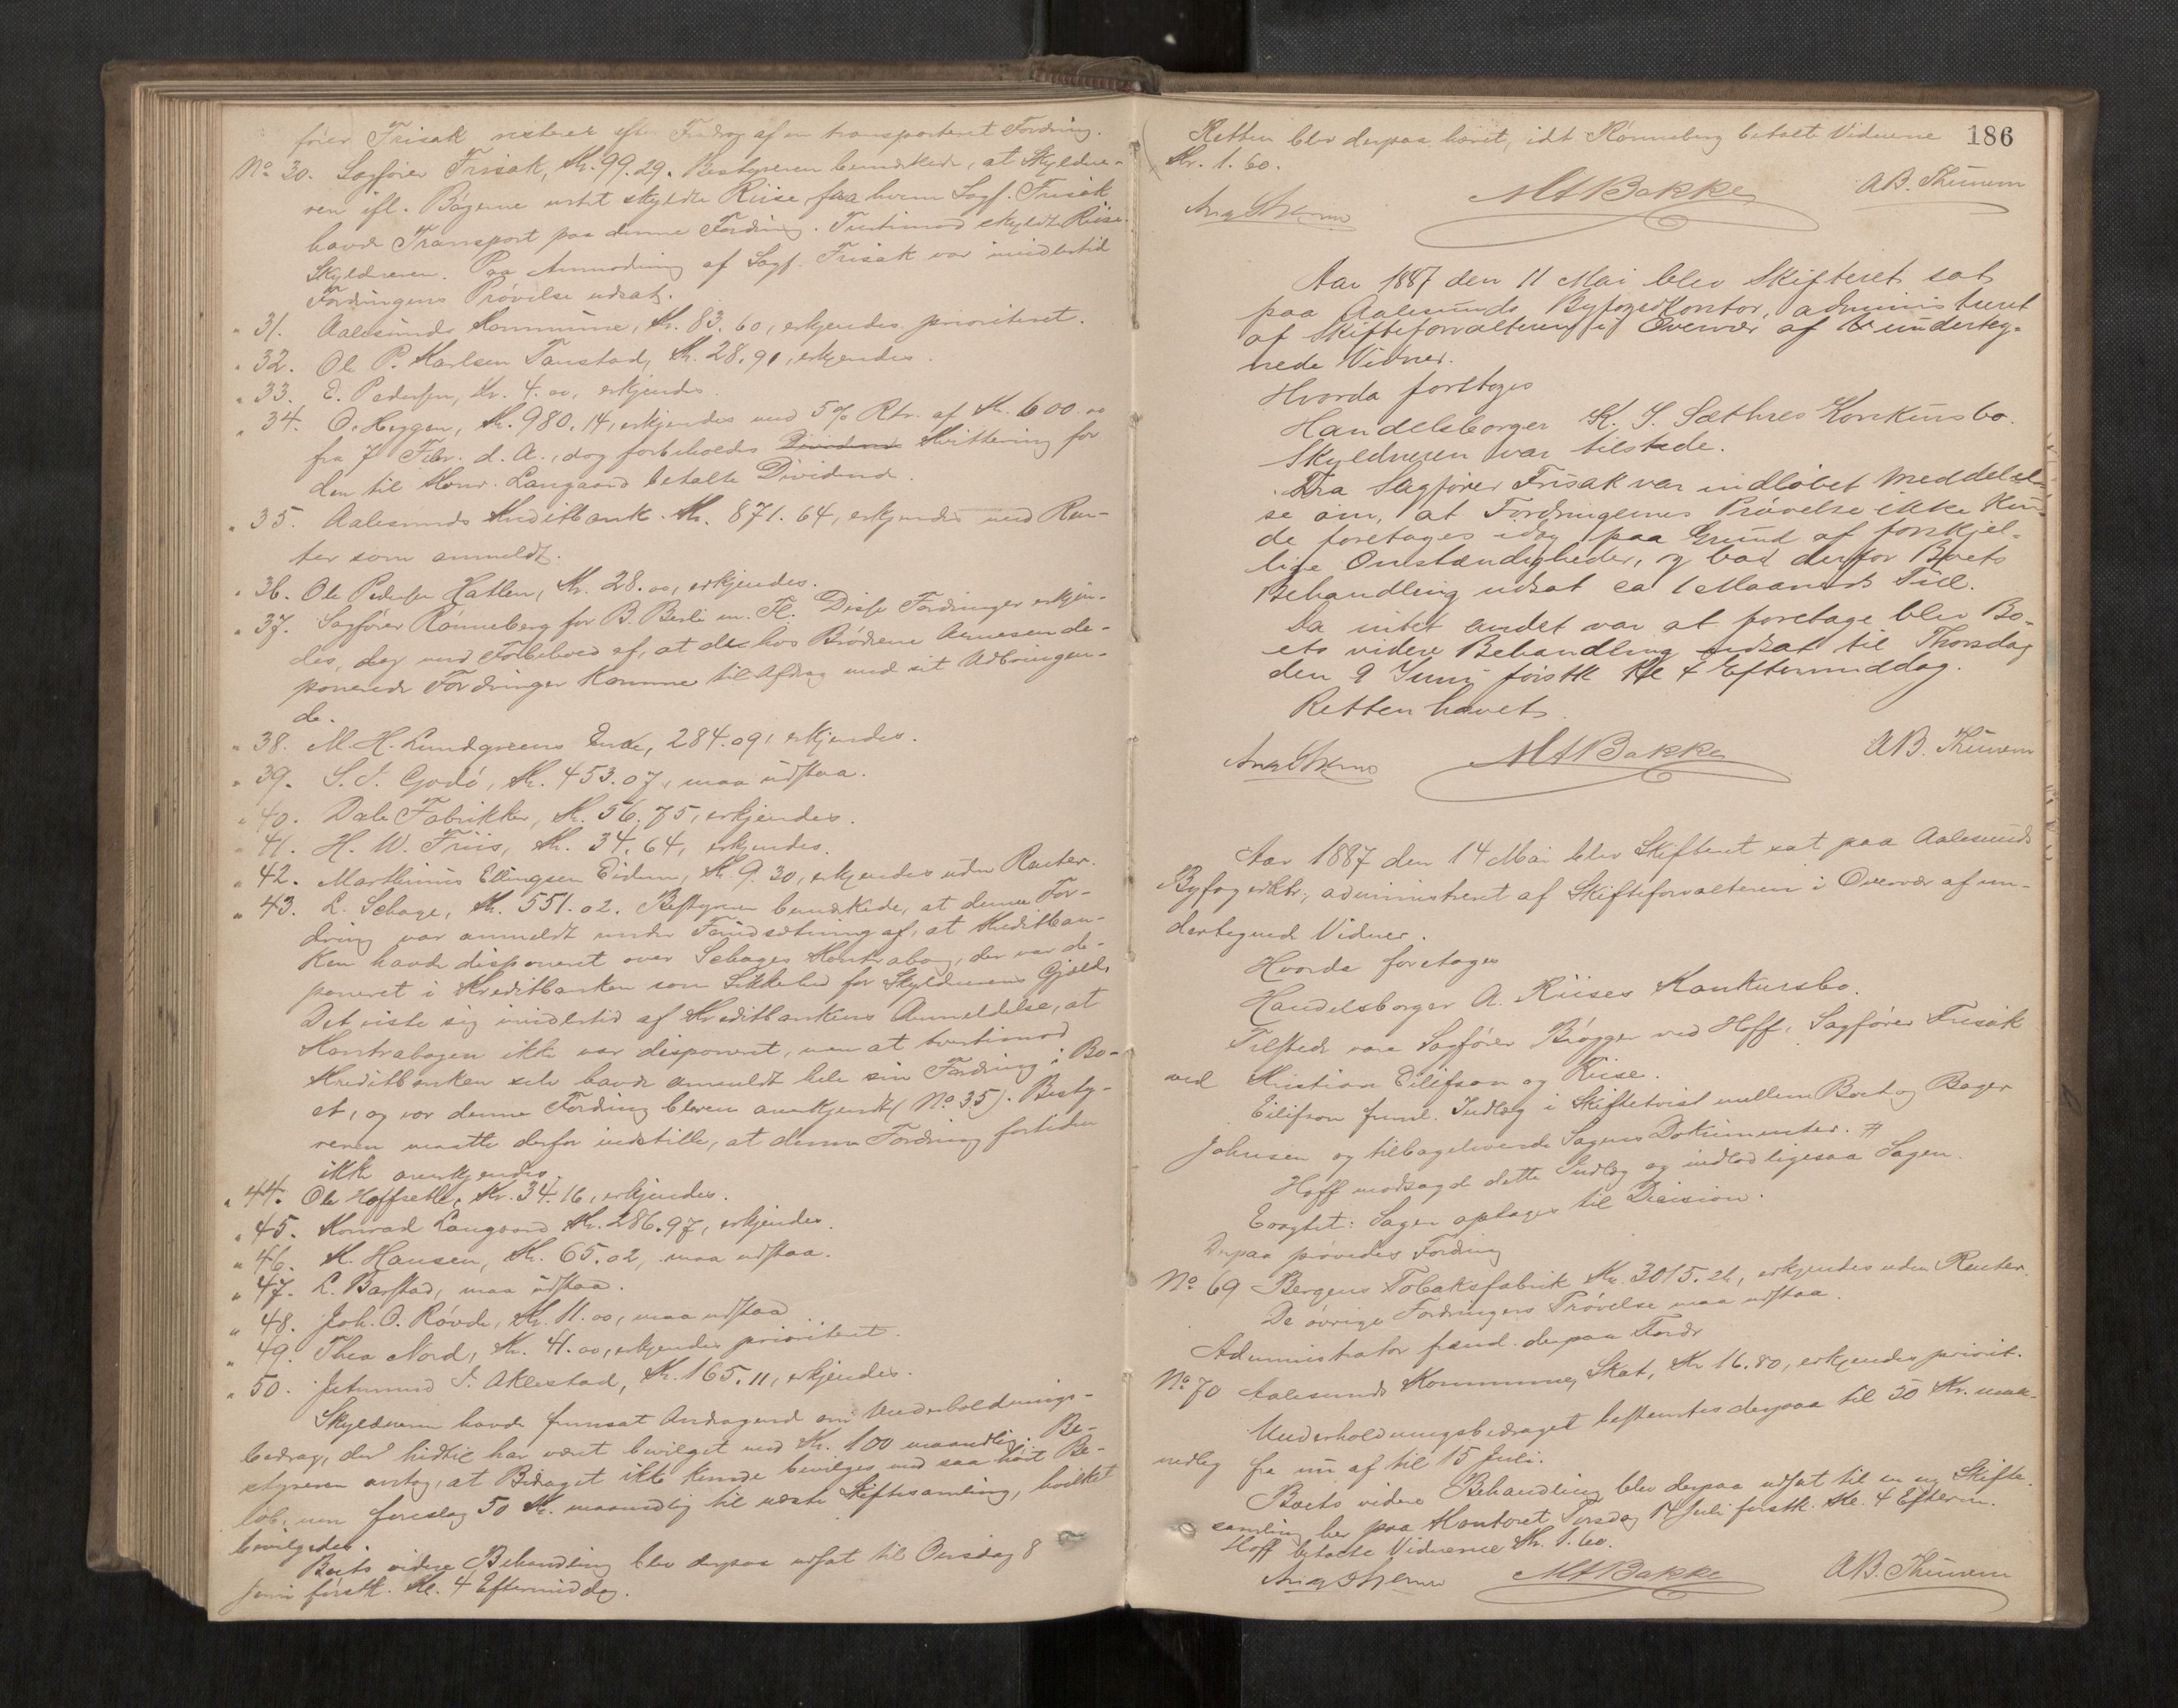 fører Frisak resterer efter Fradrag af en transporteret Fordring.
No 30. Sagfører Frisak, Kr. 99.29. Bestyreren bemærkede, at Skyldne-
ren ifl. Bøgerne intet skyldte Riise fra hvem Sagf. Frisak
havde Transport paa denne Fordring. Tvertimod skyldte Riise
Skyldneren. Paa Anmodning af Sagf. Frisak var imidlertid
Fordringens Prøvelse udsat.
" 31. Aalesunds Kommune, Kr. 83.60, erkjendes prioriteret.
" 32. Ole P. Karlsen Tanstad, Kr. 28.91, erkjendes.
" 33. E. Pedersen, Kr. 4.00, erkjendes.
" 34. O. Heggen, Kr. 980.14, erkjendes med 5% Rtr. af Kr. 600.00
fra 7 Febr. d. A., dog forbeholdes Dividend Kvittering for
den til Konr. Langaard betalte Dividend.
" 35. Aalesunds Kreditbank Kr. 871.64, erkjendes med Ren-
ter som anmeldt.
" 36. Ole Pedersen Hatlen, Kr. 28.00, erkjendes.
" 37. Sagfører Rønneberg for B. Berli m. Fl. Disse Fordringer erkjen-
des, dog med Forbehold af, at de hos Brødrene Arnesen de-
ponerede Fordringer komme til Afdrag med sit Udbringen-
de.
" 38. M. H. Lundgreens Enke, 284.09, erkjendes.
" 39. S. J. Godø, Kr. 453.07, maa udstaa.
" 40. Dale Fabrikker, Kr. 56.75, erkjendes.
" 41. H. W. Friis, Kr. 34.64, erkjendes.
" 42. Marthinus Ellingsen Eidem, Kr. 9.30, erkjendes uden Renter.
" 43. L. Schage, Kr. 551.02. Bestyreren bemærkede, at denne For-
dring var anmeldt under Forudsætning af, at Kreditban-
ken havde disponeret over Schages Kontrabog, der var de-
poneret i Kreditbanken som Sikkerhed for Skyldnerens Gjæld.
Det viste sig imidlertid af Kreditbankens Anmeldelse, at
Kontrabogen ikke var disponeret, men at tvertimod
Kreditbanken selv havde anmeldt hele sin Fordring i Bo-
et, og var denne Fordring bleven anerkjendt (No 35). Besty-
reren maatte derfor indstille, at denne Fordring fortiden
ikke anerkjendes.
" 44. Ole Hoffseth, Kr. 34.16, erkjendes.
" 45. Konrad Langaard Kr. 286.97, erkjendes.
" 46. K. Hansen, Kr. 65.02, maa udstaa.
" 47. L. Barstad, maa udstaa.
" 48. Joh. O. Røvde, Kr. 11.00, maa udstaa
" 49. Thea Nord, Kr. 41.00, erkjendes prioriteret.
" 50. Jetmund J. Aklestad, Kr. 165.11, erkjendes.
Skyldneren havde fremsat Andragende om Underholdnings-
bidrag, der hidtil har været bevilget med Kr. 100 maandlig. Be-
styreren antog, at Bidraget ikke kunde bevilges med saa høit Be-
løb, men foreslog 50 Kr. maanedlig til næste Skiftesamling, hvilket
bevilgedes.
Boets videre Behandling blev derpaa udsat til Onsdag 8
Juni førstk. Kl. 4 Eftermiddag.
186
Retten blev derpaa hævet, idet Rønneberg betalte Vidnerne
Kr. 1.60.
MABakke
AB. Thinnem
Aar 1887 den 11 Mai blev Skifteret sat
paa Aalesunds Byfogedkontor, administreret
af Skifteforvalteren i Overvær af underteg-
nede Vidner.
Hvorda foretoges
Handelsborger K. J. Sæthres Konkursbo.
Skyldneren var tilstede.
Fra Sagfører Frisak var indløbet Meddelel-
se om, at Fordringernes Prøvelse ikke kun-
de foretages idag paa Grund af forskjel-
lige Omstændigheder, og bad derfor Boets
Behandling udsat ca 1 Maaneds Tid.
Da intet andet var at foretage blev Bo-
ets videre Behandling udsat til Thorsdag
den 9 Juni førstk Kl 4 Eftermiddag.
Retten hævet.
MABakke
AB. Thinnem
Aar 1887 den 14 Mai blev Skifteret sat paa Aalesunds
Byfogedktr., administreret af Skifteforvalteren i Overvær af un-
dertegnede Vidner.
Hvorda foretoges
Handelsborger A. Riises Konkursbo.
Tilstede vare Sagfører Brøgger ved Hoff, Sagfører Frisak
ved Kristian Eilifson og Riise.
Eilifson freml. Indlæg i Skiftetvist mellem Boet og Bager
Johnsen og tilbageleverede Sagens Dokumenter. #
Hoff modsagde dette Indlæg og indlod ligesaa Sagen.
Eragtet: Sagen optages til Decision.
Derpaa prøvedes Fordring
No 69 Bergens Tobaksfabrik Kr. 3015.26, erkjendes uden Renter.
De øvrige Fordringers Prøvelse maa udstaa.
Administrator freml. derpaa Fordr
No 70 Aalesunds Kommune, Skat, Kr 16.80, erkjendes priorit.
Underholdningsbidraget bestemtes derpaa til 50 Kr. maa-
nedlig fra nu af til 15 Juli.
Boets videre Behandling blev derpaa udsat til en ny Skifte-
samling her paa Kontoret Torsdag 14 Juli førstk. Kl. 4 Efterm.
Hoff betalte Vidnerne Kr. 1.60.
MABakke
AB. Thinnem